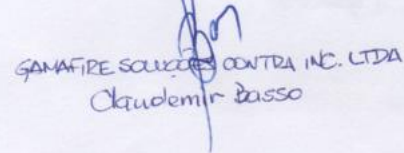 GAMAFIRE SOLUÇÕES CONTRA INC. LTDA
Claudemir Basso